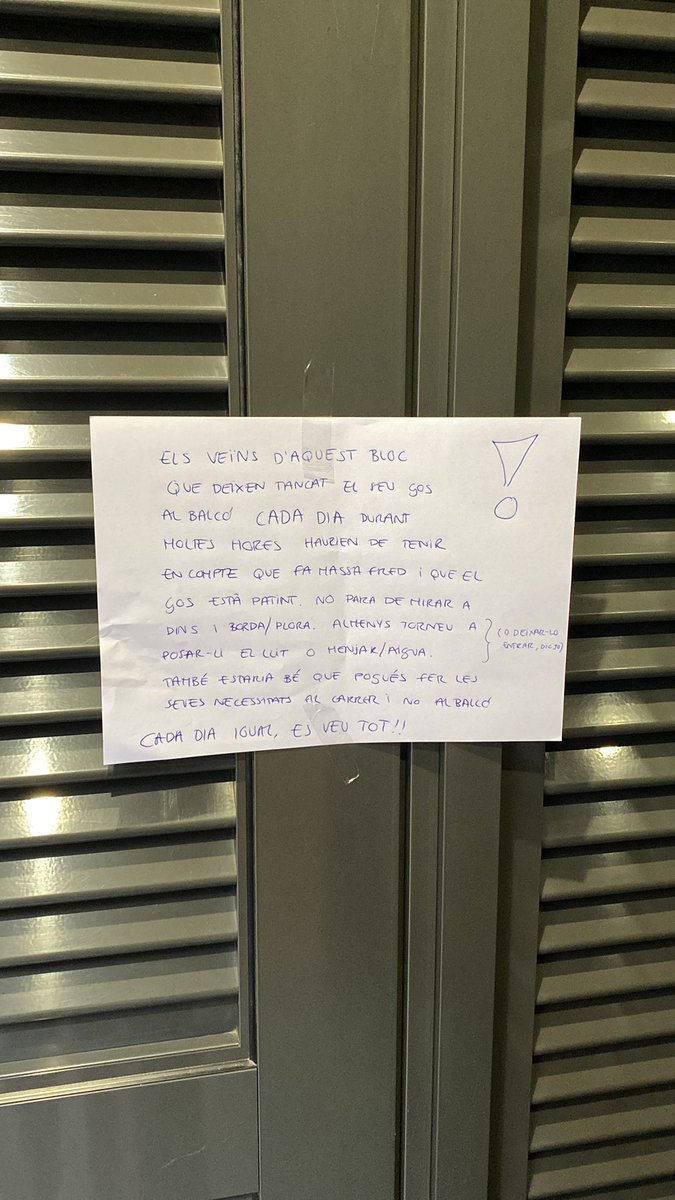 ELS VEÏNS D'AQUEST BLOC
QUE DEIXEN TANCAT EL SEU GOS
AL BALCÓ CADA DIA DURANT
MOLTES HORES HAURIEN DE TENIR
EN COMPTE QUE FA MASSA FRED I QUE EL
GOS ESTÀ PATINT. NO PARA DE MIRAR A
DINS I BORDA/PLORA. ALMENYS TORNEU A
POSAR-LI EL LLIT O MENJAR/AIGUA.
(O DEIXAR-LO
ENTRAR, DIC JO)
TAMBÉ ESTARIA BÉ QUE POGUÉS FER LES
SEVES NECESSITATS AL CARRER I NO AL BALCÓ
CADA DIA IGUAL, ES VEU TOT!!
!